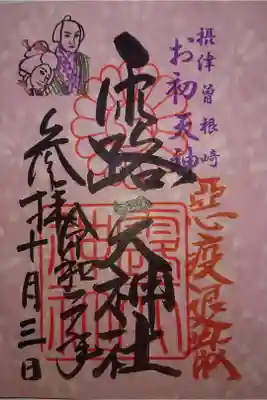 摂津曽根崎
お初天神
悪疫退散
露 天神社
参拝
令和二年
十月三日